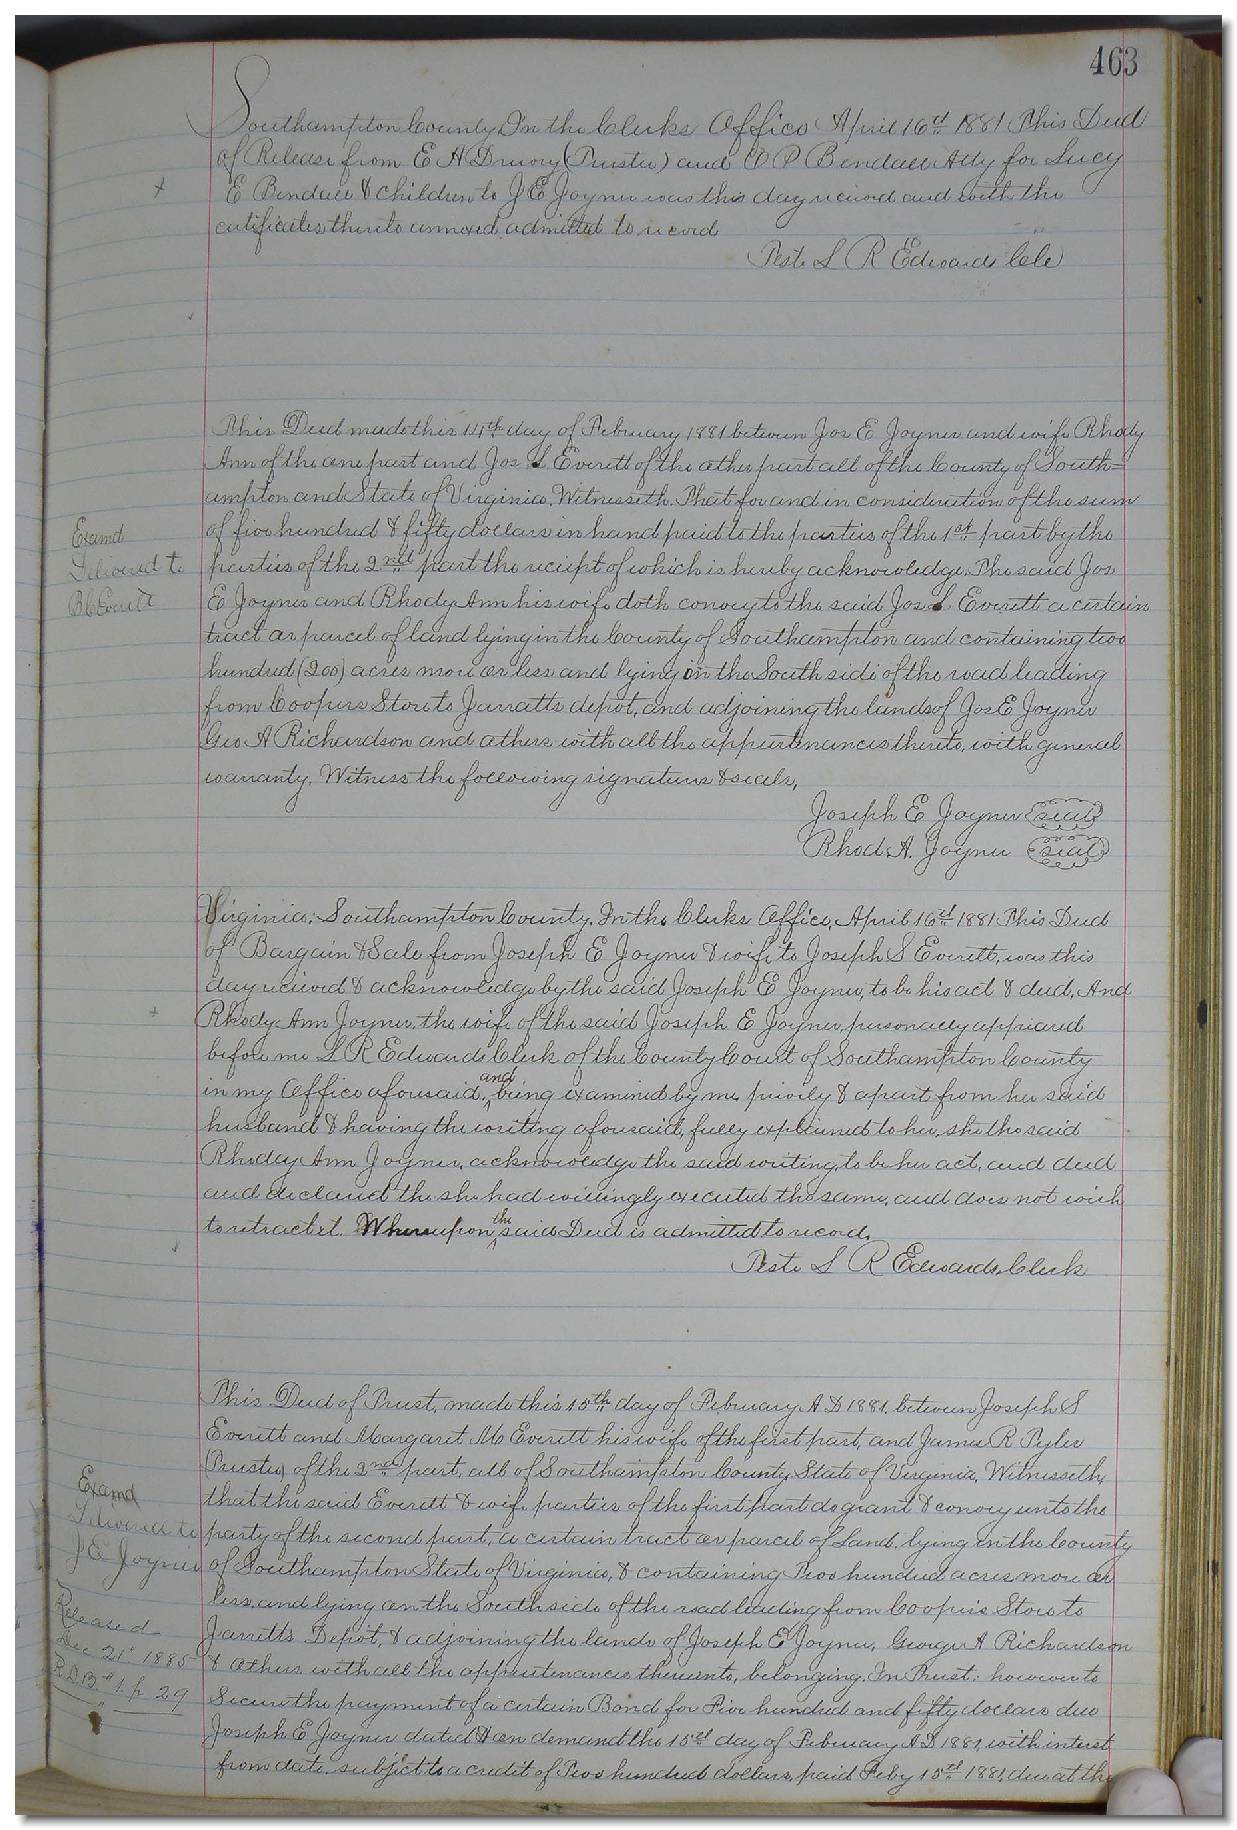 463
Southampton County, In the Clerks Office April 16th 1881 This Deed
of Release from E A Drury (Trustee) and O P Bendall Atty for Lucy
E Bendall & children to J E Joyner was this day received and with the
certificates thereto annexed admitted to record
Teste L R Edwards Cle
This Deed made this 14th day of February 1881 between Jos E Joyner and wife Rhody
Ann of the one part and Jos S Everett of the other part all of the County of South=
ampton and State of Virginia. Witnesseth. That for and in consideration of the sum
of five hundred & fifty dollars in hand paid to the parties of the 1st part by the
parties of the 2nd part the reciept of which is hereby acknowledge. The said Jos
E Joyner and Rhody Ann his wife doth convey to the said Jos S Everett a certain
tract or parcel of land lying in the County of Southampton and containing two
hundred (200) acres more or less and lying on the South side of the road leading
from Coopers Store to Jarratts depot, and adjoining the lands of Jos E Joyner
Geo A Richardson and others with all the appurtenances thereto, with general
warranty. Witness the following signatures & seals,
Examd
Delivered to
B C Everett
Joseph E Joyner seal
Rhod. A. Joyner seal
Virginia; Southampton County. In the Clerks Office, April 16th 1881 This Deed
of Bargain & Sale from Joseph E Joyner & wife to Joseph S Everett, was this
day recieved & acknowledge by the said Joseph E Joyner, to be his act & deed, And
Rhody Ann Joyner, the wife of the said Joseph E Joyner, personally appeared
before me L R Edwards Clerk of the County Court of Southampton County
in my Office aforesaid, and being examined by me privily & apart from her said
husband & having the writing aforesaid, fully explained to her, she the said
Rhodey Ann Joyner, acknowledge the said writing to be her act, and deed
and declared the she had willingly executed the same, and does not wish
to retract it. Whereupon the said Deed is admitted to record.
Teste L R Edwards, Clerk
This Deed of Trust, made this 15th day of February A D 1881. between Joseph S
Everett and Margaret M Everett his wife of the first part, and James R Tyler
(Trustee) of the 2nd part, all of Southampton County State of Virginia, Witnesseth,
that the said Everett & wife parties of the first part do grant & convey unto the
party of the second part, a certain tract or parcel of land, lying in the County
of Southampton State of Virginia, & containing Two hundred acres more or
less, and lying on the South side of the road leading from Cooper's Store to
Jarratt's Depot, & adjoining the lands of Joseph E Joyner, George A Richardson
& others with all the appurtenances thereunto, belonging. In Trust; however to
Secure the payment of a certain Bond for Five hundred and fifty dollars due
Joseph E Joyner dated & on demand the 15th day of February A D 1881, with interest
from date. subject to a credit of Two hundred dollars, paid Feby 15th 1881, due at the
Examd
Delivered to
J E Joyner
Released
Dec 21st 1885
R.D.B # 1 p 29